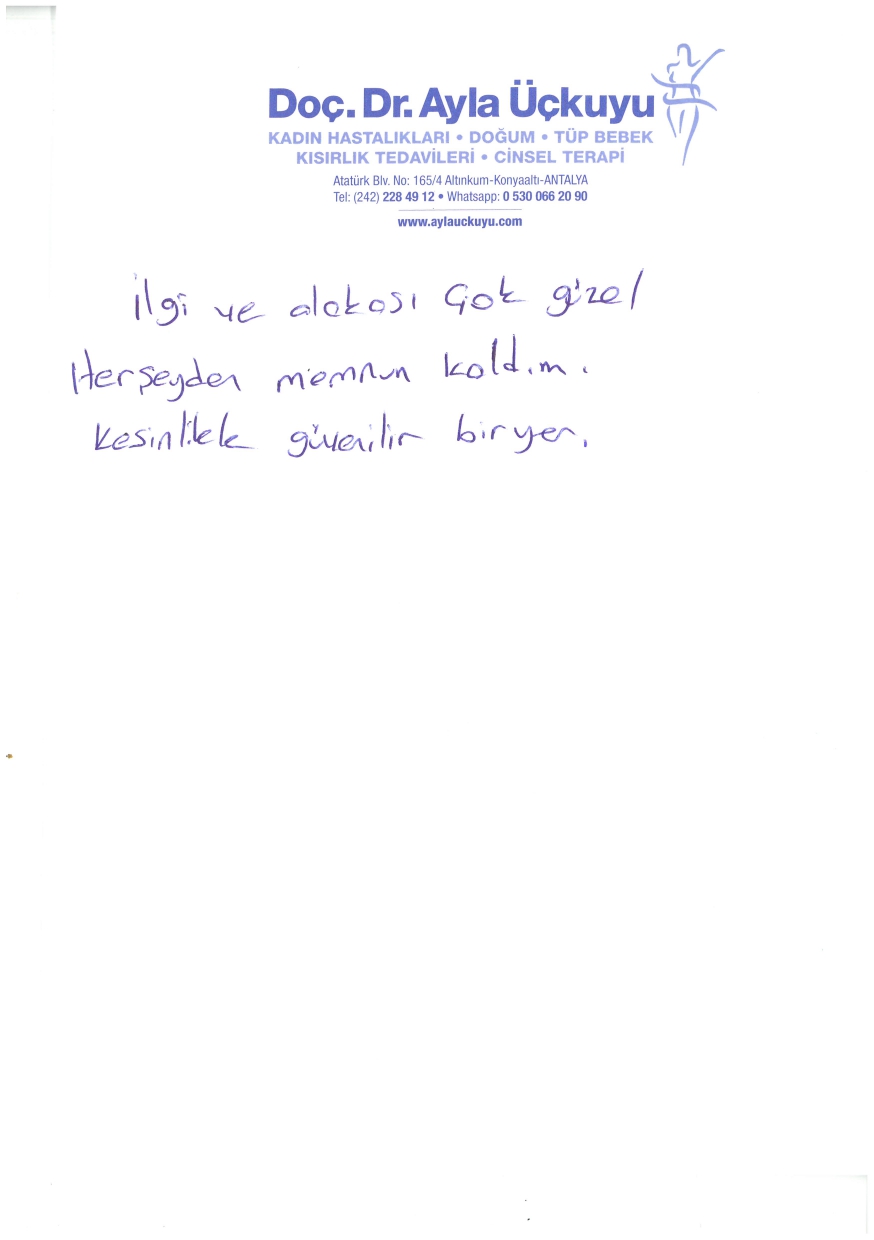 Doç. Dr. Ayla Üçkuyu
KADIN HASTALIKLARI • DOĞUM • TÜP BEBEK
KISIRLIK TEDAVİLERİ • CİNSEL TERAPİ
Atatürk Blv. No: 165/4 Altınkum-Konyaaltı-ANTALYA
Tel: (242) 228 49 12 • Whatsapp: 0 530 066 20 90
www.aylauckuyu.com
İlgi ve alakası Çok güzel
Herşeyden memnun kaldım.
Kesinlikle güvenilir bir yer.